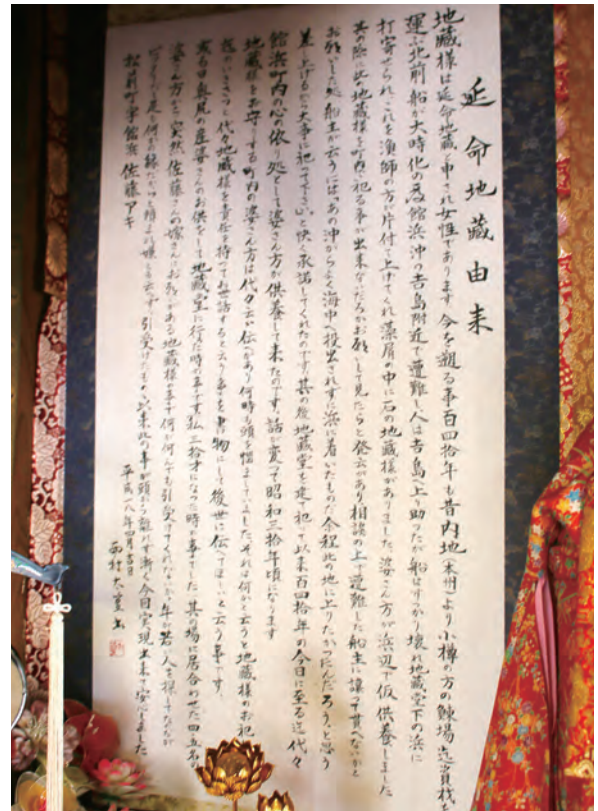 延命地蔵由来
地蔵様は延命地蔵と申され女性であります 今を遡る事百四拾年も昔内地(本州)より小樽の方の鰊場迄資材を
運ぶ北前船が大時化の為館浜沖の吉島附近で遭難し人は吉島へ上り助ったが船はすっかり壊れ地蔵堂下の浜に
打寄せられ、これを漁師の方が片付て上げてくれ藻屑の中に石の地蔵様がありました、婆さん方が浜辺で仮供養しました
其の際に此の地蔵様を町内で祀る事が出来ないだろかお願いして見たらと発言があり相談の上で遭難した船主に譲って貰へないかと
お願いした処船主が云うには、あの沖からよく海中へ投出されず浜に着いたものだ余程此の地に上りたかったんだろう、と思う
差し上げるから大事に祀って下さい、と快く承諾してくれたのです、其の後地蔵堂を建て祀って以来百四拾年の今日に至る迄代々
館浜町内の心の依り処として婆さん方が供養して来たのです、話が変って昭和三拾年頃になります
地蔵様をお守りする町内の婆さん方は代々云い伝へがあり何時も頭を悩ましていました、それは何かと云うと地蔵様のお祀
りのいきさつと代々地蔵様を責任を持ってお世話すると云う事を書物にして後世に伝てほしいと云う事です、
或る日奥尻の産婆さんのお供をして地蔵堂に行った時の事です私三拾才になった時の事でした、其の場に居合わせた四五名の
婆さん方から突然佐藤さんの嫁さんにお願いがある地蔵様の事で何が何んでも引受けてくれないか年が若い人を探してたなだが
松前町字館浜 佐藤アキ
平成八年四月吉日